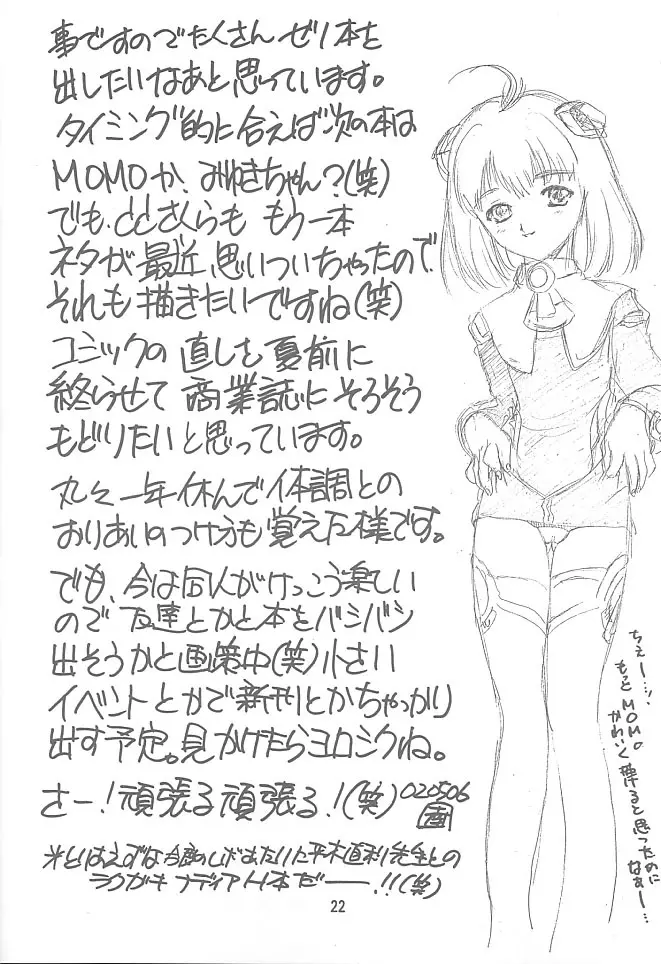 事ですのでたくさん ゼリ本を
出したいなあと思っています。
タイミング的に合えば次の本は
MOMOか、みゆきちゃん?(笑)
でも、ccさくらも もう一本
ネタが最近、思いついちゃったので、
それも描きたいですね(笑)
コミックの直しを夏前に
終らせて 商業誌にそろそろ
もどりたいと思っています。
丸々一年休んで体調との
おりあいのつけ方も覚えた様です。
でも、今は同人がけっこう楽しい
ので 友達とかと本をバシバシ
出そうかと画策中(笑)小さい
イベントとかで新刊とかちゃっかり
出す予定。見かけたらヨロシクね。
さー!頑張る頑張る!(笑)020506
※とりはえずな 今度の
平木直利先生との
ラクガキ ナディアH本だーー!!(笑)
ちぇー…、
もっとMOMO
かわいく
描ると思ったのに
なぁー…
22